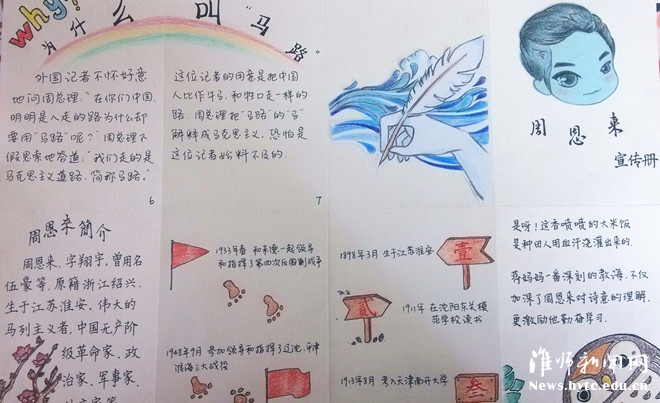 why?
为什么叫"马路"
外国记者不怀好意
地问周总理:"在你们中国,
明明是人走的路为什么却
要用"马路"呢?"周总理不
假思索地答道:"我们走的是
马克思主义道路,简称马路。"
6
这位记者的用意是把中国
人比作牛马,和牲口走一样的
路.周总理把"马路"的"马"
解释成马克思主义,恐怕是
这位记者始料不及的.
7
周恩来
宣传册
周恩来簡介
周恩来,字翔宇,曾用名
伍豪等,原籍浙江绍兴,
生于江苏淮安。伟大的
马列主义者,中国无产阶
级革命家、政
治家、军事家、
1933年春 和朱德一起领导
和指挥了第四次反围剿战争
1948年9月 参加领导和指挥了辽沈、平津
淮海三大战役
1898年3月 生于江苏淮安
壹
贰
1911年 在沈阳东关模
范学校读书
1913年8月 考入天津南开大学
叁
是呀!这香喷喷的大米饭
是种田人用血汗浇灌出来的.
蒋妈妈一番深刻的教诲,不仅
加深了周恩来对诗意的理解,
更激励他勤奋学习.
淮师新闻网
News.hytc.edu.cn